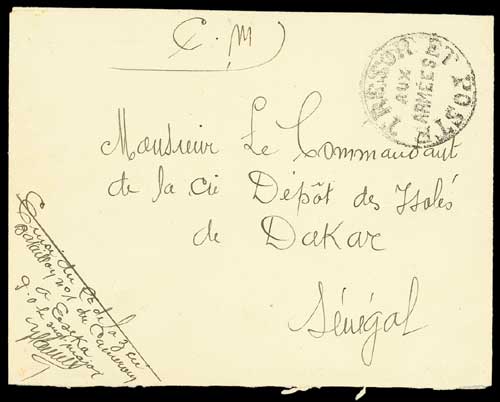 C.M
TRESOR ET POSTES
AUX
ARMÉES
Monsieur Le Commandant
de la Cie Dépôt des Isolés
de Dakar
Sénégal
Envoi du Ct de la 3 cie
Bataillon no 1 du Cameroun
a